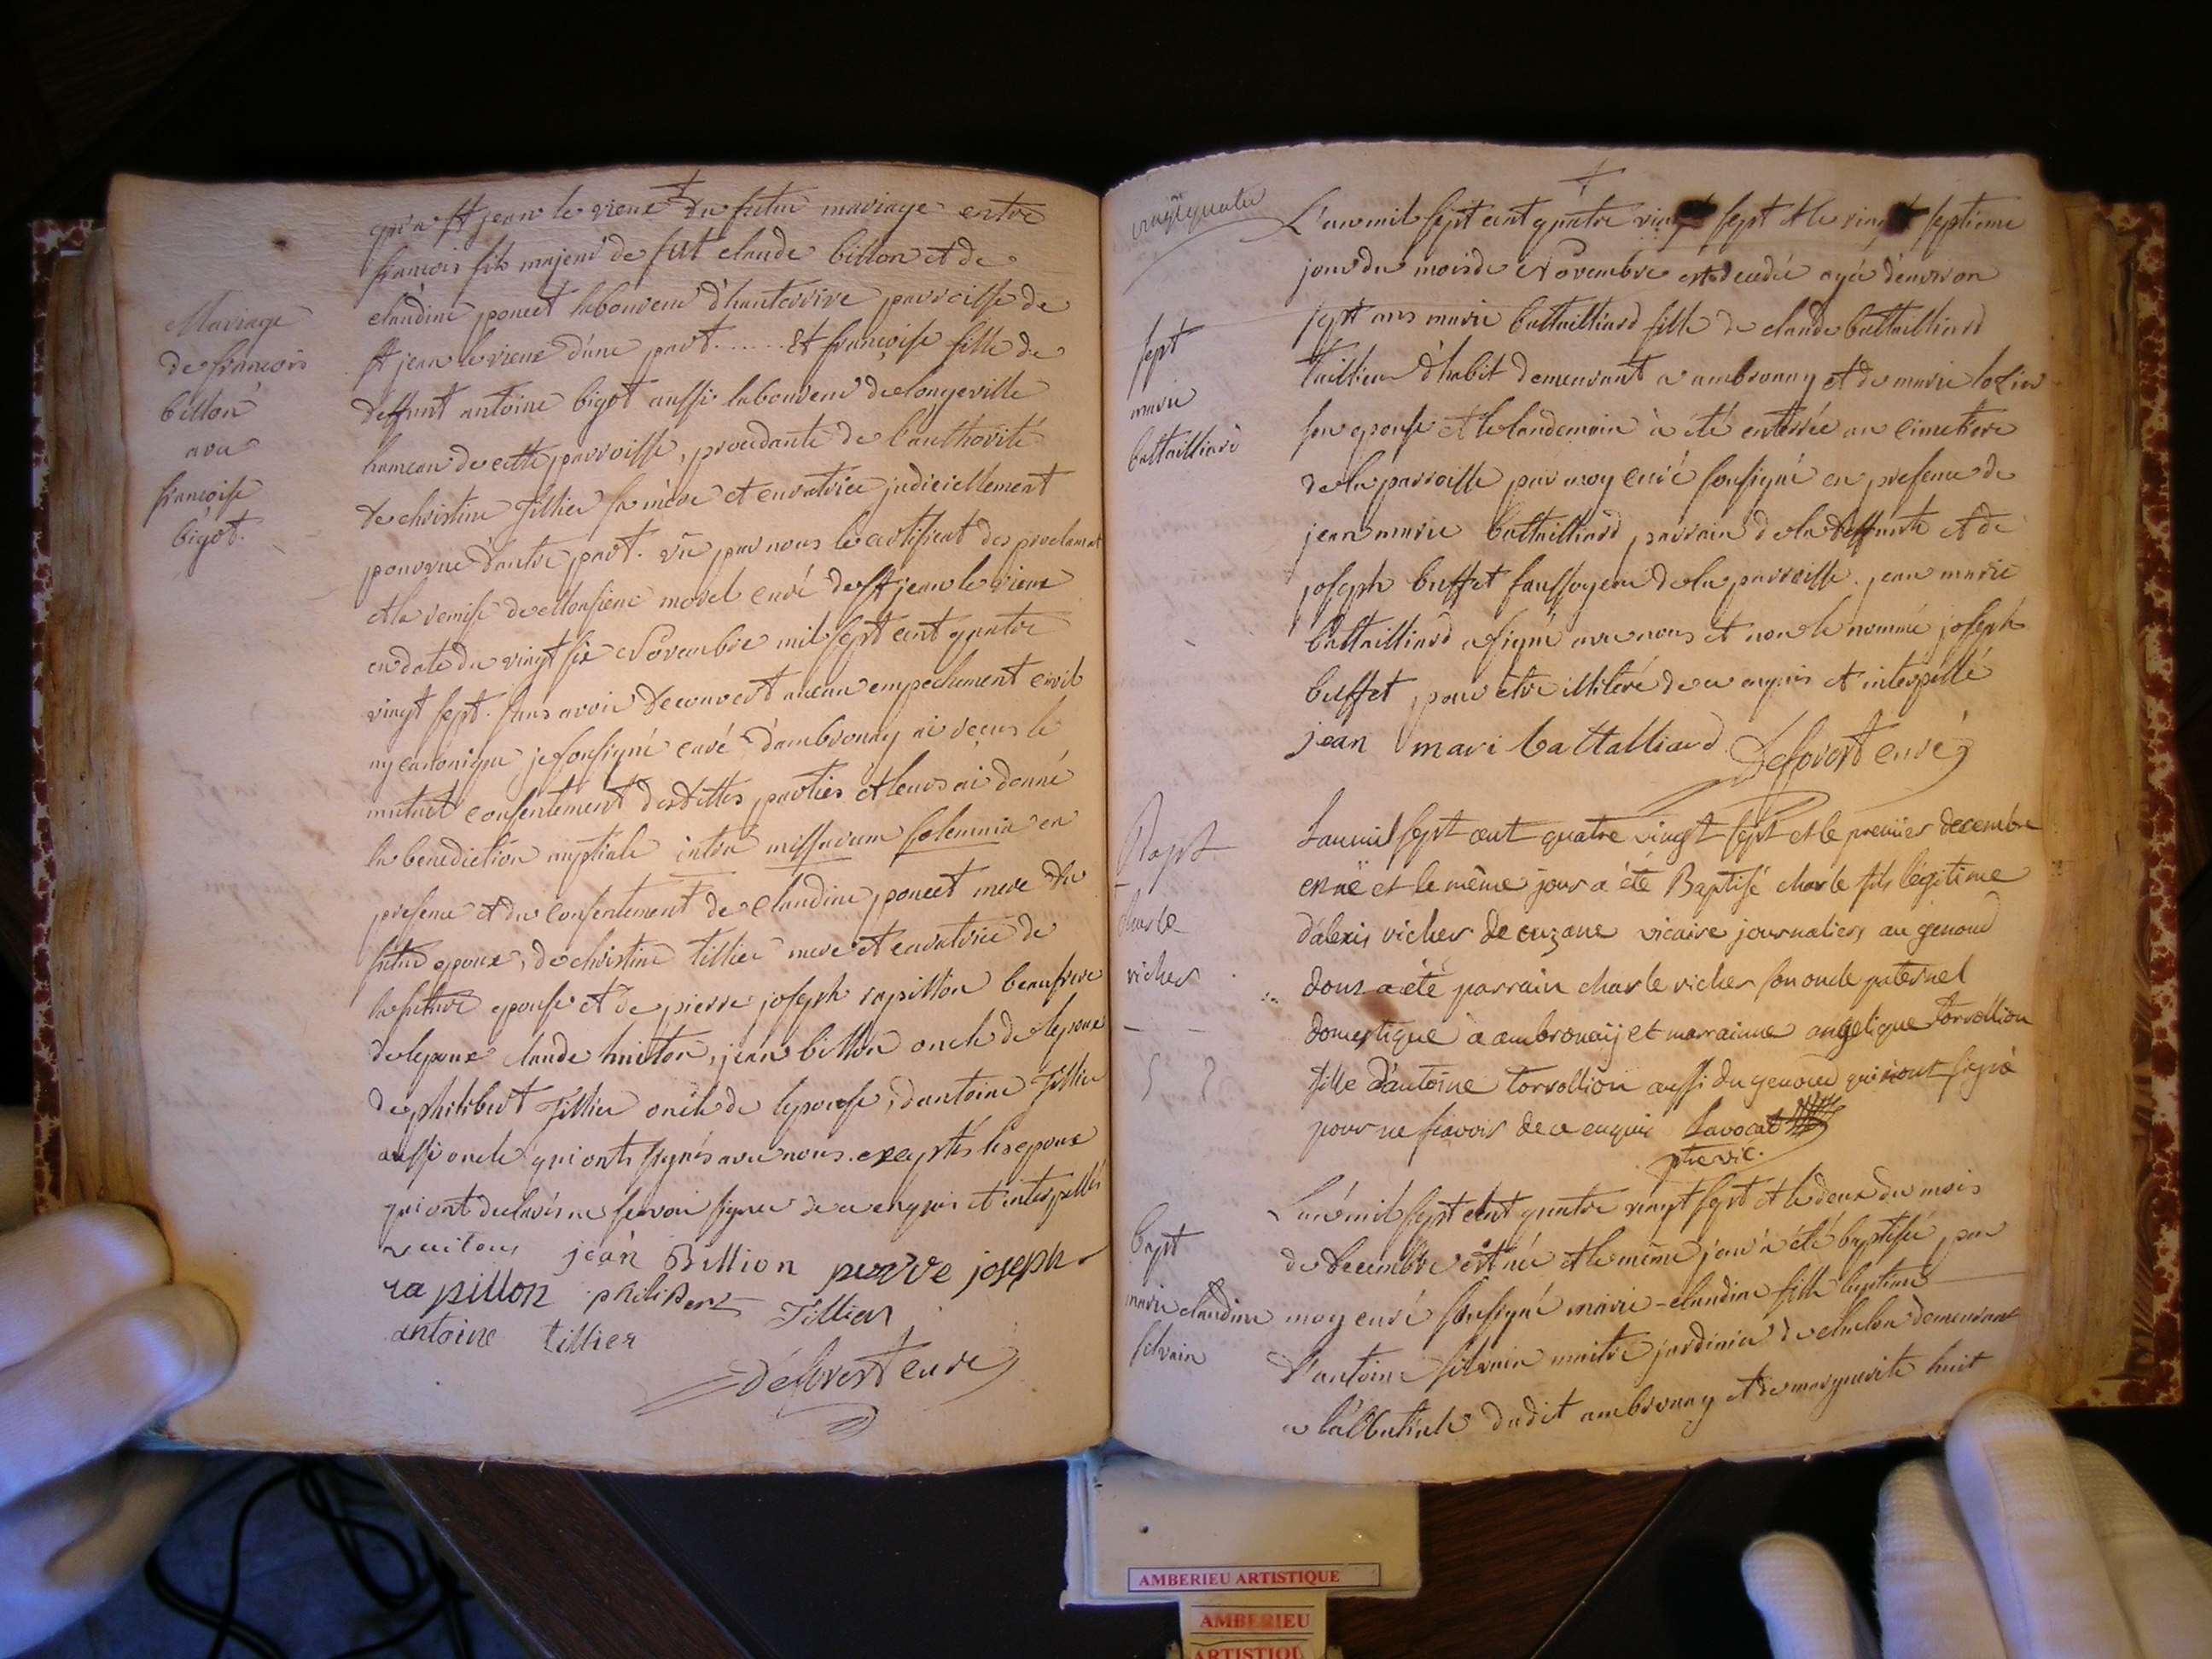 Mariage
de francois
billon
avec
francoise
bigot.
qu'a st jean le vieux du futur mariage entre
francois fils majeur de fut claude billon et de
claudine poncet laboureur d'hauterive parroisse de
st jean le vieux d'une part. ...... Et françoise fille de
deffunt antoine bigot aussi laboureur de longeville
hameau de cette parroisse, procedante de l'authorité
de christine Tillier sa mère et curatrice judiciellement
pourvue d'autre part. vu par nous le certificat des proclamat
et la remise de Monsieur morel curé de st jean le vieux
en date du vingt six Novembre mil sept cent quatre
vingt sept. sans avoir decouvert aucun empechement civil
ny canonique je sousigné curé d'ambronay ai reçus le
mutuel consentement desdittes parties et leurs ai donné
la benediction nuptiale intra missarum solemnia en
presence et du consentement de Claudine poncet mere du
futur epoux, de christine tillier mere et curatrice de
la future epouse et de pierre joseph rapillon beaufrere
de lepoux claude huiton, jean billon oncle de lepoux
de philibert Tillier oncle de lepouse, d'antoine Tillier
aussi oncle qui onts signés avec nous exceptés les epoux
qui ont declarés ne sçavoir signer de ce enquis et interpellés
jean Billion pierre joseph
rapillon philibert Tillier
antoine tillier
Deforest curé
vingt quatre
L'an mil sept cent quatre vingt sept et le vingt septieme
jour du mois de Novembre est decedée agée d'environ
sept ans marie battailliard fille de claude battailliard
tailleur d'habit demeurant a ambronay et de marie
son epouse et le landemain à été enterrée au cimetiere
de la parroisse par moy curé sousigné en presence de
jean marie battailliard parrain de la deffunte et de
joseph buffet faussoyeur de la parroisse. jean marie
battailliard a signé avec nous et non le nommé joseph
buffet, pour etre illitéré de ce enquis et interpéllé
jean mari battalliard Deforest curé
sept
marie
battailliard
Bapt
charle
richer
L'an mil sept cent quatre vingt sept et le premier decembre
est né et le même jour a été Baptisé charle fils légitime
d'alexis richer de cuzane vicaire journalier au genoud
dont a été parrain charle richer son oncle paternel
domestique a ambronaÿ et marraine angelique Torvollion
fille d'antoine torvollion aussi du genoud qui n'ont signé
pour ne sçavoir de ce enquis Lavocat
ptre vic.
bapt
marie claudine
silvain
L'an mil sept cent quatre vingt sept et le deux du mois
de decembre est née et le même jour à été baptisée par
moy curé sousigné marie-claudine fille legitime
d'antoine silvain maitre jardinier de chalon demeurant
a labbatiale dudit ambronay et de marguerite huit
AMBERIEU ARTISTIQUE
AMBERIEU
ARTISTIQU